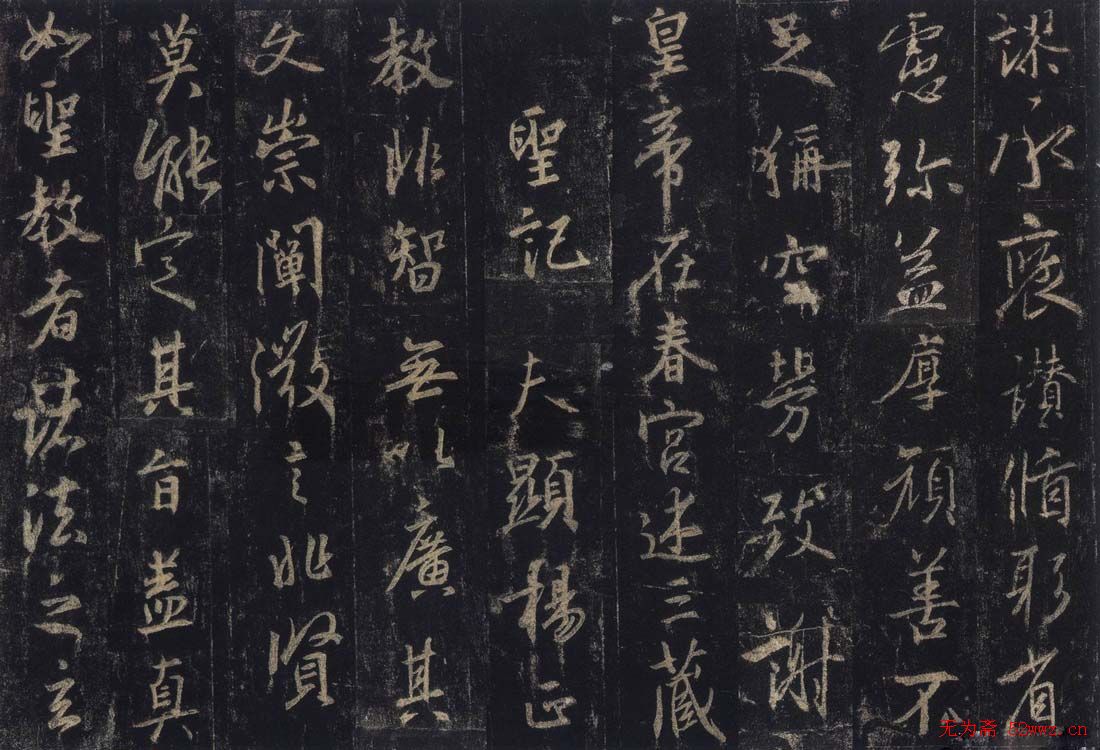 謬承褒讚循躬省
慮弥益厚顏善不
足稱空勞致謝
皇帝在春宮述三藏
聖記　夫顯揚正
教非智無以廣其
文崇闡微言非賢
莫能定其旨盖真
如聖教者諸法之玄
无为斋 52wwz.cn